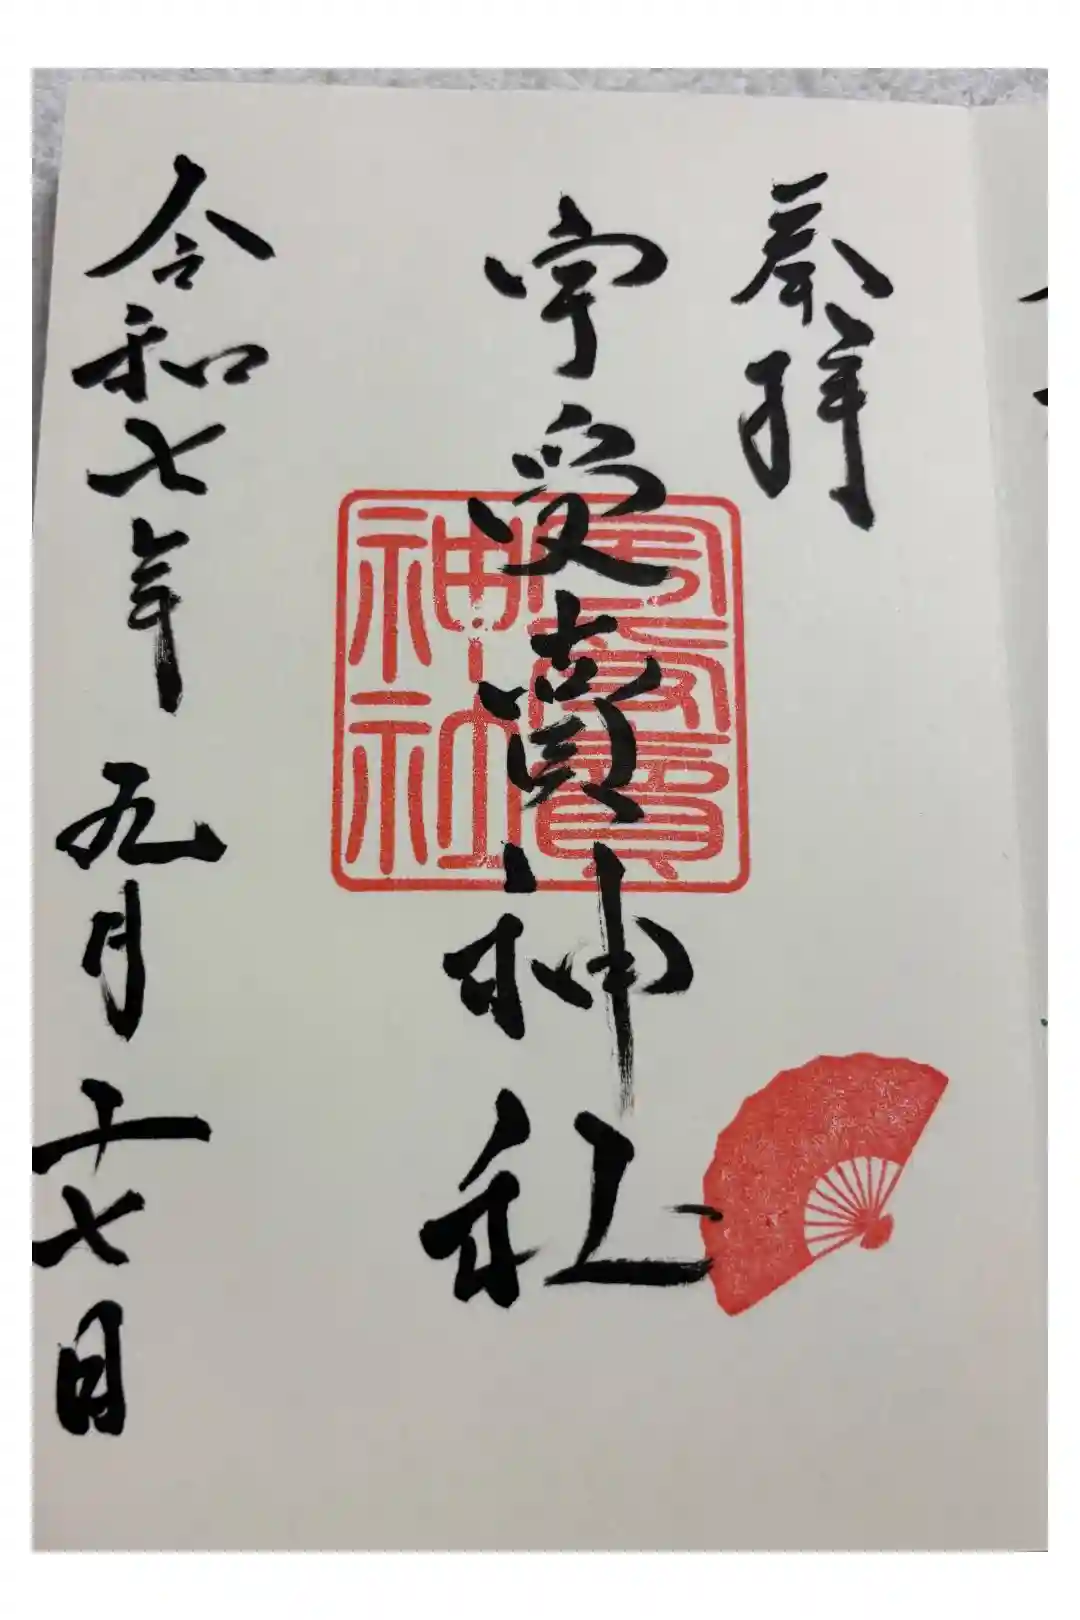 奉拝
宇受賣神社
宇受賣
神社
令和七年九月十七日